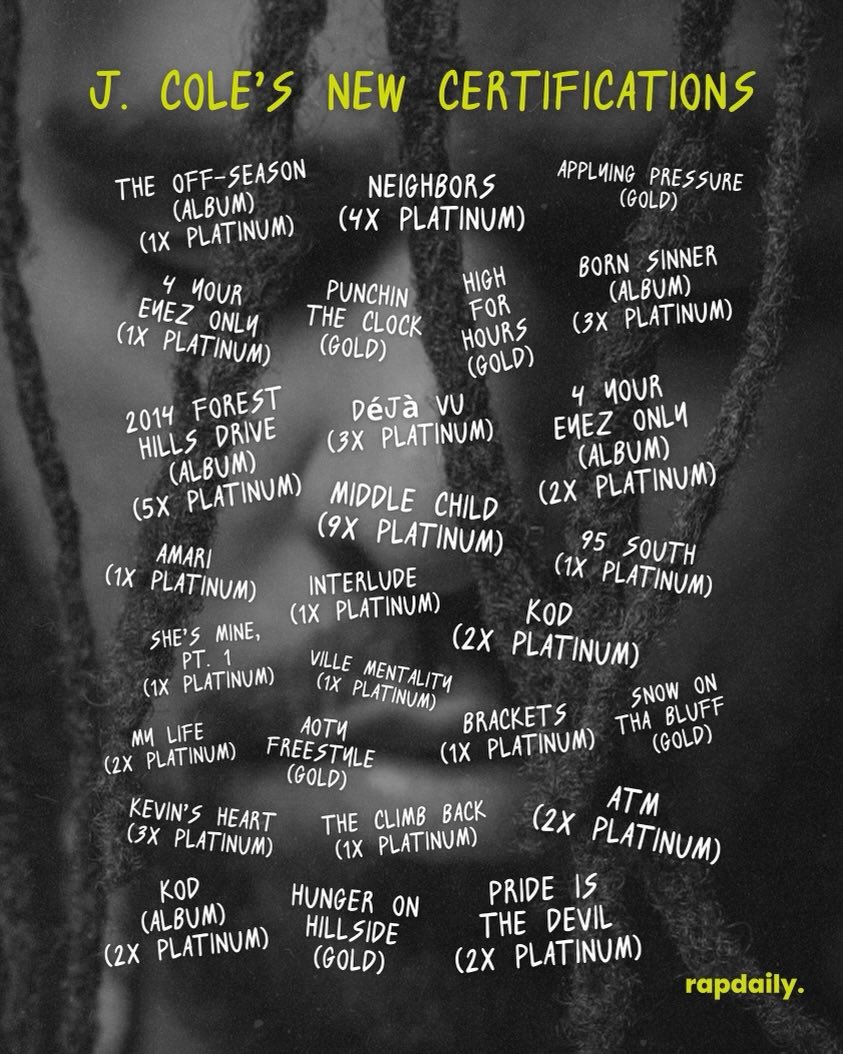 J. COLE'S NEW CERTIFICATIONS
THE OFF-SEASON
(ALBUM)
(1X PLATINUM)
NEIGHBORS
(4X PLATINUM)
APPLYING PRESSURE
(GOLD)
4 YOUR
EYEZ ONLY
(1X PLATINUM)
PUNCHIN
THE CLOCK
(GOLD)
HIGH
FOR
HOURS
(GOLD)
BORN SINNER
(ALBUM)
(3X PLATINUM)
2014 FOREST
HILLS DRIVE
(ALBUM)
(5X PLATINUM)
DéJà VU
(3X PLATINUM)
4 YOUR
EYEZ ONLY
(ALBUM)
(2X PLATINUM)
MIDDLE CHILD
(9X PLATINUM)
AMARI
(1X PLATINUM)
INTERLUDE
(1X PLATINUM)
95 SOUTH
(1X PLATINUM)
KOD
(2X PLATINUM)
SHE'S MINE,
PT. 1
(1X PLATINUM)
VILLE MENTALITY
(1X PLATINUM)
MY LIFE
(2X PLATINUM)
AOTY
FREESTYLE
(GOLD)
BRACKETS
(1X PLATINUM)
SNOW ON
THA BLUFF
(GOLD)
KEVIN'S HEART
(3X PLATINUM)
THE CLIMB BACK
(1X PLATINUM)
ATM
(2X PLATINUM)
KOD
(ALBUM)
(2X PLATINUM)
HUNGER ON
HILLSIDE
(GOLD)
PRIDE IS
THE DEVIL
(2X PLATINUM)
rapdaily.